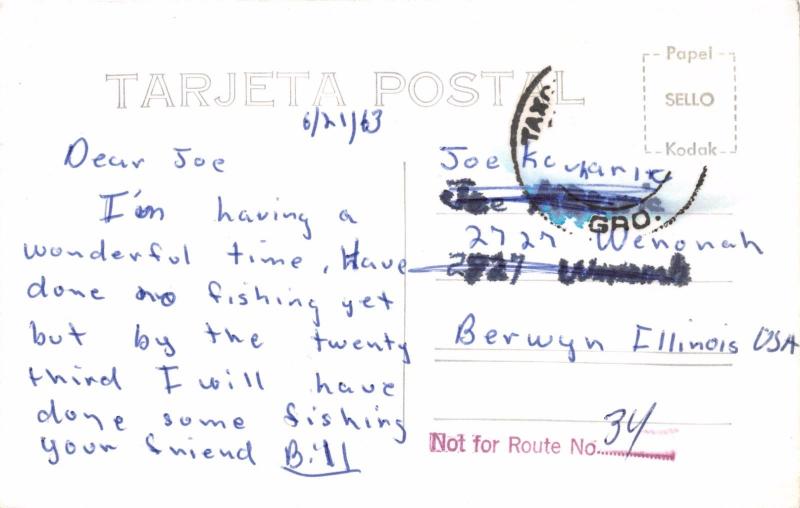 TARJETA POSTAL
Papel
SELLO
Kodak
6/21/63
Dear Joe
I'm having a
wonderful time, Have
done no fishing yet
but by the twenty
third I will have
done some fishing
your friend Bill
TAXC
GRO.
Joe
2727 Wenonah
2727
Berwyn Illinois USA
Not for Route No. 34